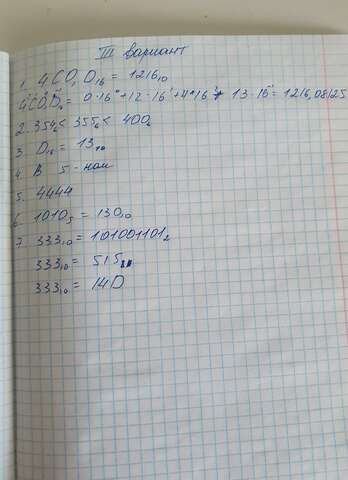 III вариант
1. 4C0,D₁₆ = 1216₁₀
4C0,D₁₆ = 0·16⁰+12·16¹+4·16² + 13·16⁻¹ = 1216,08125
2. 354₆ < 355₆ < 400₆
3. D₁₆ = 13₁₀
4. В 5-ной
5. 4444
6. 1010₅ = 130₁₀
7. 333₁₀ = 101001101₂
333₁₀ = 515₈
333₁₀ = 14D